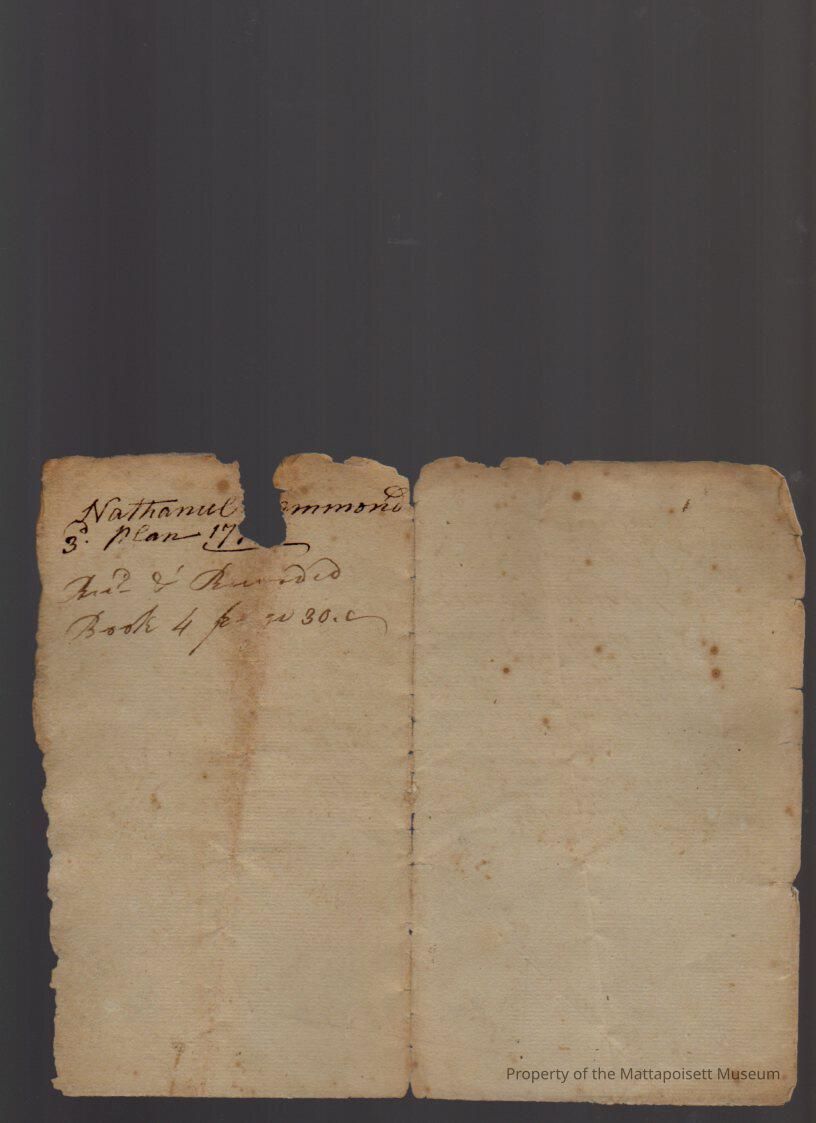 Nathaniel mmond
3d. plan 17
Recd & Recorded
Book 4 page 30.
Property of the Mattapoisett Museum